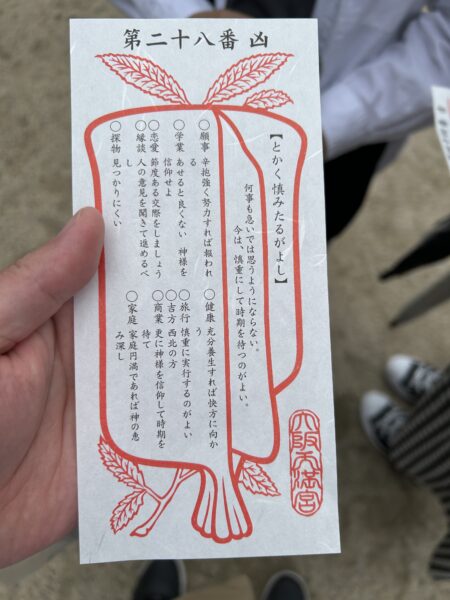 第二十八番 凶
【とかく慎みたるがよし】
何事も急いでは思うようにならない。
今は、慎重にして時期を待つのがよい。
○願事 辛抱強く努力すれば報われ
る
○学業 あせると良くない 神様を
信仰せよ
○恋愛 節度ある交際をしましょう
○縁談 人の意見を聞きて進めるべ
し
○探物 見つかりにくい
○健康 充分養生すれば快方に向か
う
○旅行 慎重に実行するのがよい
○吉方 西北の方
○商業 更に神様を信仰して時期を
待て
○家庭 家庭円満であれば神の恵
み深し
大阪天満宮